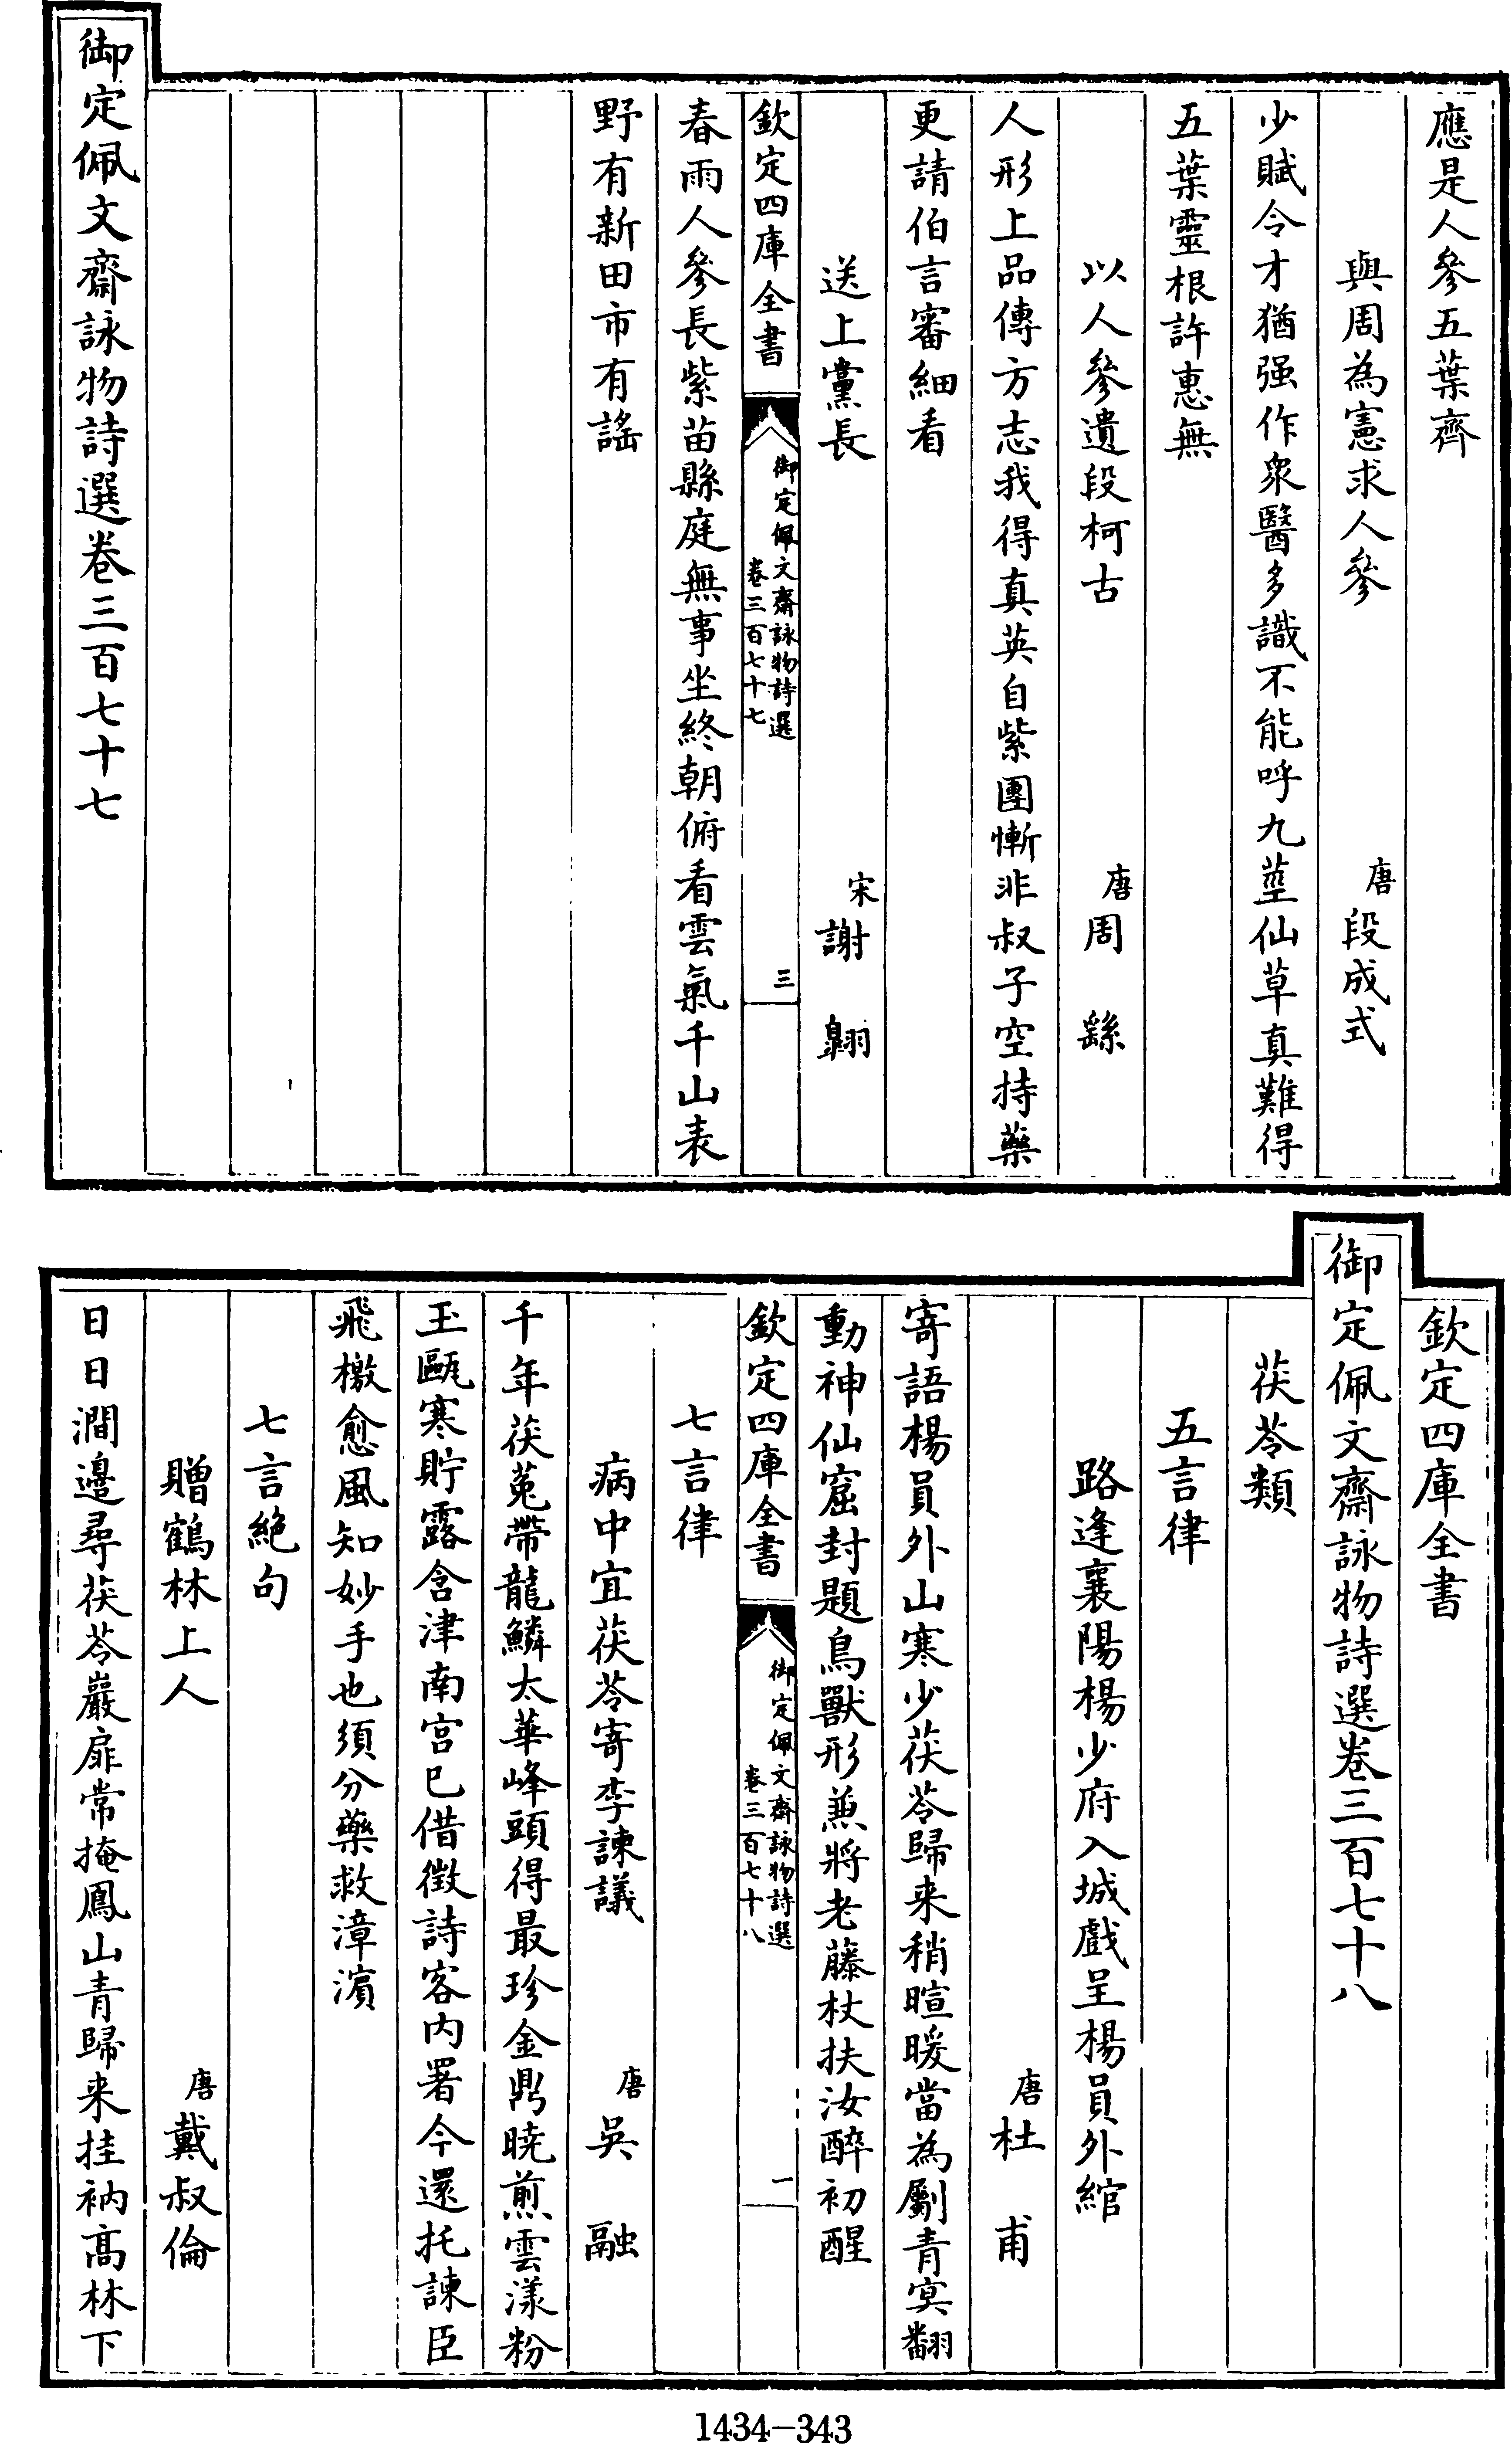 應是人參五葉齊
與周為憲求人參 唐段成式
少賦令才猶强作衆醫多識不能呼九莖仙草真難得
五葉靈根許惠無
以人參遺段柯古 唐周繇
人形上品傳方志我得真英自紫團慚非叔子空持藥
更請伯言審細看
送上黨長 宋謝翺
欽定四庫全書 御定佩文齋詠物詩選 卷三百七十七 三
春雨人參長紫苗縣庭無事坐終朝俯看雲氣千山表
野有新田市有謠
御定佩文齋詠物詩選卷三百七十七
欽定四庫全書
御定佩文齋詠物詩選卷三百七十八
茯苓類
五言律
路逢襄陽楊少府入城戲呈楊員外綰
唐杜甫
寄語楊員外山寒少茯苓歸来稍暄暖當為劚青冥翻
動神仙窟封題鳥獸形兼將老藤杖扶汝醉初醒
欽定四庫全書 御定佩文齋詠物詩選 卷三百七十八 一
七言律
病中宜茯苓寄李諫議 唐吳融
千年茯菟帶龍鱗太華峰頭得最珍金鼎曉煎雲漾粉
玉甌寒貯露含津南宫已借徵詩客内署今還托諫臣
飛檄愈風知妙手也須分藥救漳濱
七言絶句
贈鶴林上人 唐戴叔倫
日日澗邊尋茯苓巖扉常掩鳳山青歸来挂衲髙林下
1434-343